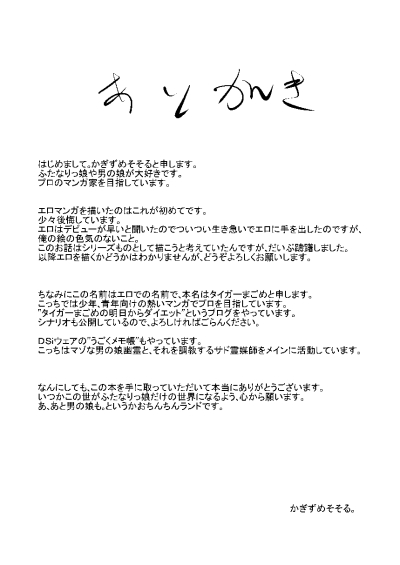 あとがき
はじめまして。かぎずめそそると申します。
ふたなりっ娘や男の娘が大好きです。
プロのマンガ家を目指しています。
エロマンガを描いたのはこれが初めてです。
少々後悔しています。
エロはデビューが早いと聞いたのでついつい生き急いでエロに手を出したのですが、
俺の絵の色気のないこと。
このお話はシリーズものとして描こうと考えていたんですが、だいぶ躊躇しました。
以降エロを描くかどうかはわかりませんが、どうぞよろしくお願いします。
ちなみにこの名前はエロでの名前で、本名はタイガーまごめと申します。
こっちでは少年、青年向けの熱いマンガでプロを目指しています。
"タイガーまごめの明日からダイエット"というブログをやっています。
シナリオも公開しているので、よろしければごらんください。
DSiウェアの"うごくメモ帳"もやっています。
こっちはマゾな男の娘幽霊と、それを調教するサド霊媒師をメインに活動しています。
なんにしても、この本を手に取っていただいて本当にありがとうございます。
いつかこの世がふたなりっ娘だけの世界になるよう、心から願います。
あ、あと男の娘も。というかおちんちんランドです。
かぎずめそそる。